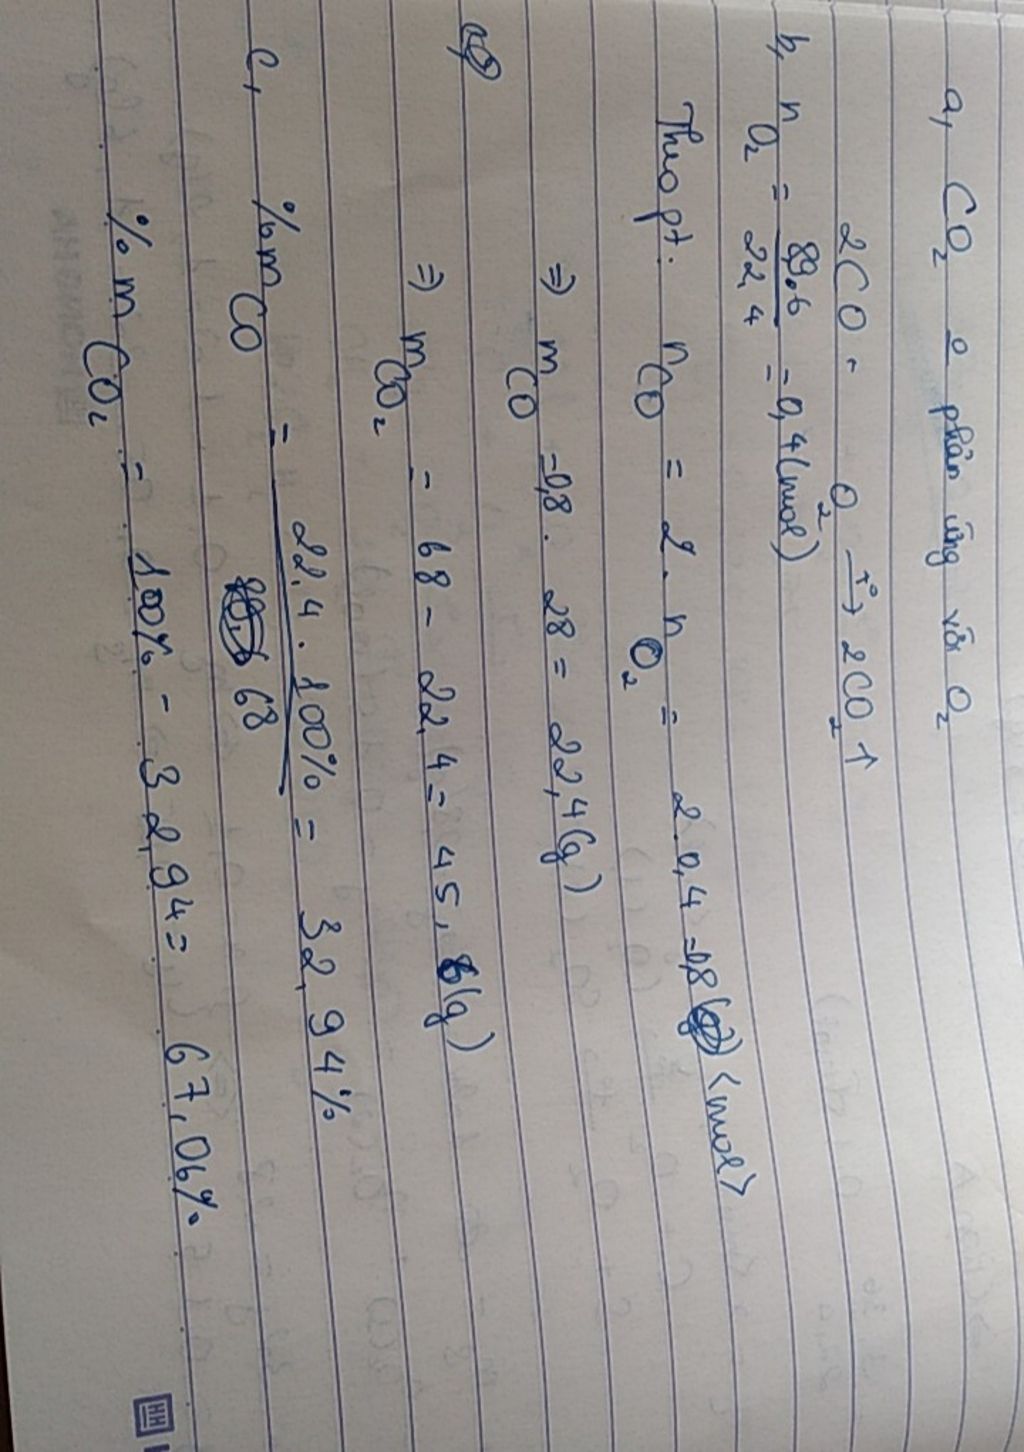 a, CO₂ o phản ứng với O₂
2CO + O₂ --t°--> 2CO₂ ↑
b, n O₂ = 89.6 / 22,4 = 0,4 (mol)
Theo pt: n CO = 2. n O₂ = 2. 0,4 = 0,8 (mol)
=) m CO = 0,8. 28 = 22,4 (g)
=) m CO₂ = 68 - 22,4 = 45,6 (g)
c, % m CO = 22,4. 100% / 68 = 32,94%
% m CO₂ = 100% - 32,94 = 67,06%
HH